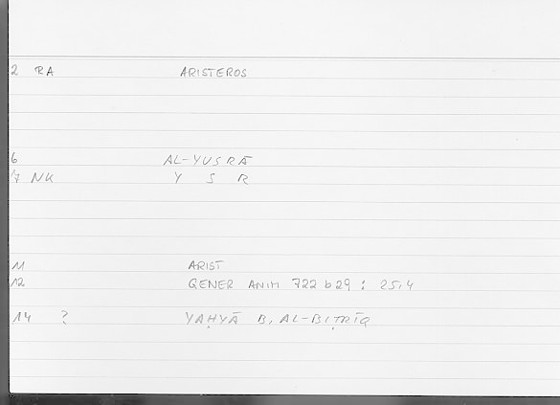 2 RA ARISTEROS
6 AL-YUSRĀ
7 NK Y S R
11 ARIST
12 GENER ANIM 722 b 29 : 25,4
14 ? YAḤYĀ B. AL-BIṬRĪQ